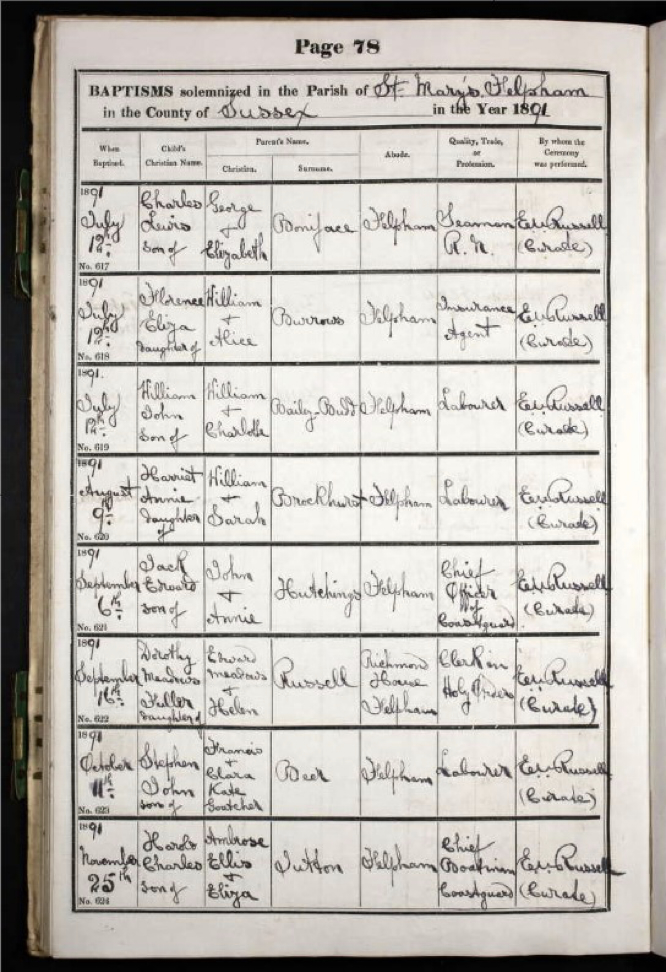 Page 78
BAPTISMS solemnized in the Parish of St. Mary's, Felpham
in the County of Sussex in the Year 1891
When Baptised. Child's Christian Name. Parent's Name. Christian. Surname. Abode. Quality, Trade, or Profession. By whom the Ceremony was performed.
1891 July 12th No. 617 Charles Lewis son of George & Elizabeth Boniface Felpham Seaman R. N. Russell (Curate)
1891 July 12th No. 618 Florence Eliza daughter of William & Alice Burrows Felpham Insurance Agent Russell (Curate)
1891. July 12th No. 619 William John son of William & Charlotte Felpham Labourer Russell (Curate)
1891 August 9th No. 620 Harriet Annie daughter of William & Sarah Brockhurst Felpham Labourer Russell (Curate)
1891 September 6th No. 621 Jack son of John & Annie Hutchings Felpham Chief Officer of Coastguard Russell (Curate)
1891 September 16th No. 622 Dorothy Meadows Fuller daughter of Edward Meadows & Helen Russell Richmond House Felpham Clerk in Holy Orders Russell (Curate)
1891 October 11th No. 623 Stephen John son of Francis & Clara Kate Goatcher Beer Felpham Labourer Russell (Curate)
1891 November 25th No. 624 Harold Charles son of Ambrose Ellis & Eliza Sutton Felpham Chief Boatman Coastguard Russell (Curate)